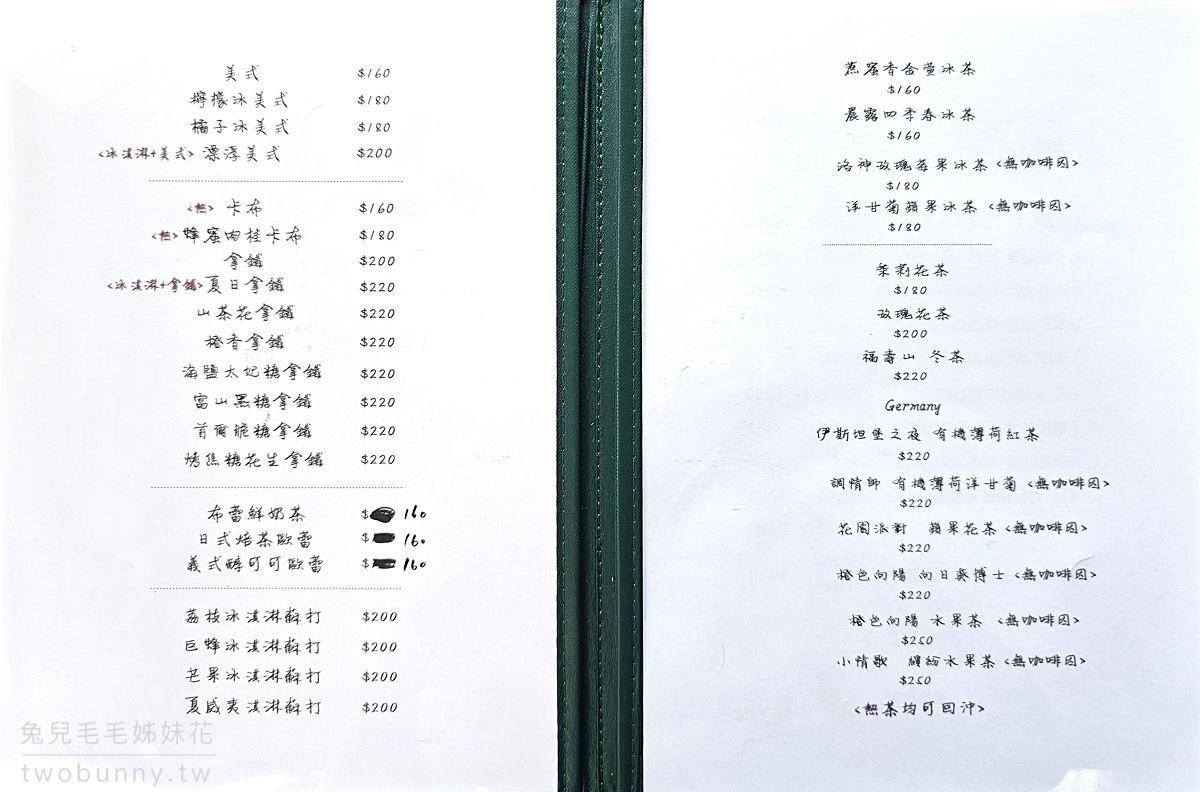 美式 $160
檸檬冰美式 $180
橘子冰美式 $180
<冰淇淋+美式> 漂浮美式 $200
<熱> 卡布 $160
<熱> 蜂蜜肉桂卡布 $180
拿鐵 $200
<冰淇淋+拿鐵> 夏日拿鐵 $220
山茶花拿鐵 $220
橙香拿鐵 $220
海鹽太妃糖拿鐵 $220
富山黑糖拿鐵 $220
首爾脆糖拿鐵 $220
烤焦糖花生拿鐵 $220
布蕾鮮奶茶 $ 160
日式焙茶歐蕾 $ 160
義式醇可可歐蕾 $ 160
荔枝冰淇淋蘇打 $200
巨蜂冰淇淋蘇打 $200
芒果冰淇淋蘇打 $200
夏威夷淇淋蘇打 $200
蔗蜜香金萱冰茶
$160
晨露四季春冰茶
$160
洛神玫瑰莓果冰茶 <無咖啡因>
$180
洋甘菊蘋果冰茶 <無咖啡因>
$180
茉莉花茶
$180
玫瑰花茶
$200
福壽山 冬茶
$220
Germany
伊斯坦堡之夜 有機薄荷紅茶
$220
調情師 有機薄荷洋甘菊 <無咖啡因>
$220
花園派對 蘋果花茶 <無咖啡因>
$220
橙色向陽 向日葵博士 <無咖啡因>
$220
橙色向陽 水果茶 <無咖啡因>
$250
小情歌 繽紛水果茶 <無咖啡因>
$250
<熱茶均可回沖>
兔兒毛毛姊妹花
twobunny.tw